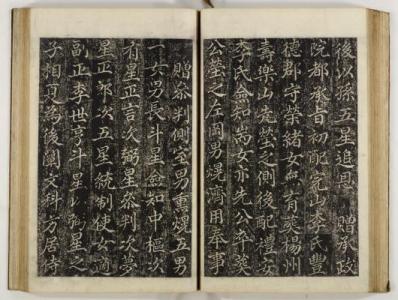 後以孫五星追恩 贈承政
院都承旨初配完山李氏豊
德郡守崇緒女無育葬楊州
壽樂山先塋之側後配禮安
李氏僉知女亦先公卒葬
公塋之左岡男焜濟用奉事
贈參判側室男熏焜五男
一女男長斗星僉知中樞次
有星正言次弼星參判次夢
星正郎次五星統制使女適
副正李世亨斗星以弼星之
子相夏爲後闡文科方居侍